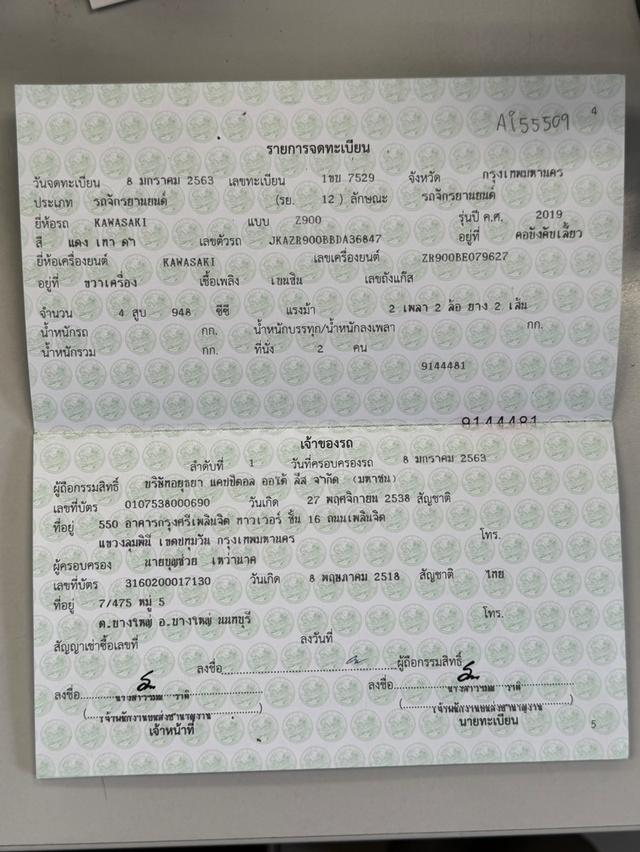 AI55509
4
รายการจดทะเบียน
วันจดทะเบียน 8 มกราคม 2563 เลขทะเบียน 1ขบ 7529 จังหวัด กรุงเทพมหานคร
ประเภท รถจักรยานยนต์ (รย. 12 ) ลักษณะ รถจักรยานยนต์
ยี่ห้อรถ KAWASAKI แบบ Z900 รุ่นปี ค.ศ. 2019
สี แดง เทา ดำ เลขตัวรถ JKAZR900BBDA36847 อยู่ที่ คอบังคับเลี้ยว
ยี่ห้อเครื่องยนต์ KAWASAKI เลขเครื่องยนต์ ZR900BE079627
อยู่ที่ ขวาเครื่อง เชื้อเพลิง เบนซิน เลขถังแก๊ส
จำนวน 4 สูบ 948 ซีซี แรงม้า 2 เพลา 2 ล้อ ยาง 2 เส้น
น้ำหนักรถ กก. น้ำหนักบรรทุก/น้ำหนักลงเพลา กก.
น้ำหนักรวม กก. ที่นั่ง 2 คน
9144481
9144481
เจ้าของรถ
ลำดับที่ 1 วันที่ครอบครองรถ 8 มกราคม 2563
ผู้ถือกรรมสิทธิ์ บริษัทอยุธยา แคปปิตอล ออโต้ ลีส จำกัด (มหาชน)
เลขที่บัตร 0107538000690 วันเกิด 27 พฤศจิกายน 2538 สัญชาติ
ที่อยู่ 550 อาคารกรุงศรีเพลินจิต ทาวเวอร์ ชั้น 16 ถนนเพลินจิต
แขวงลุมพินี เขตปทุมวัน กรุงเทพมหานคร โทร.
ผู้ครอบครอง นายบุญช่วย เหว่านาค
เลขที่บัตร 3160200017130 วันเกิด 8 พฤษภาคม 2518 สัญชาติ ไทย
ที่อยู่ 7/475 หมู่ 5
ต.บางใหญ่ อ.บางใหญ่ นนทบุรี โทร.
สัญญาเช่าซื้อเลขที่ ลงวันที่
ลงชื่อ ผู้ถือกรรมสิทธิ์
ลงชื่อ ลงชื่อ
นางสาว นางสาว
(เจ้าพนักงานขนส่งชำนาญงาน) (เจ้าพนักงานขนส่งชำนาญงาน)
เจ้าหน้าที่ นายทะเบียน
5